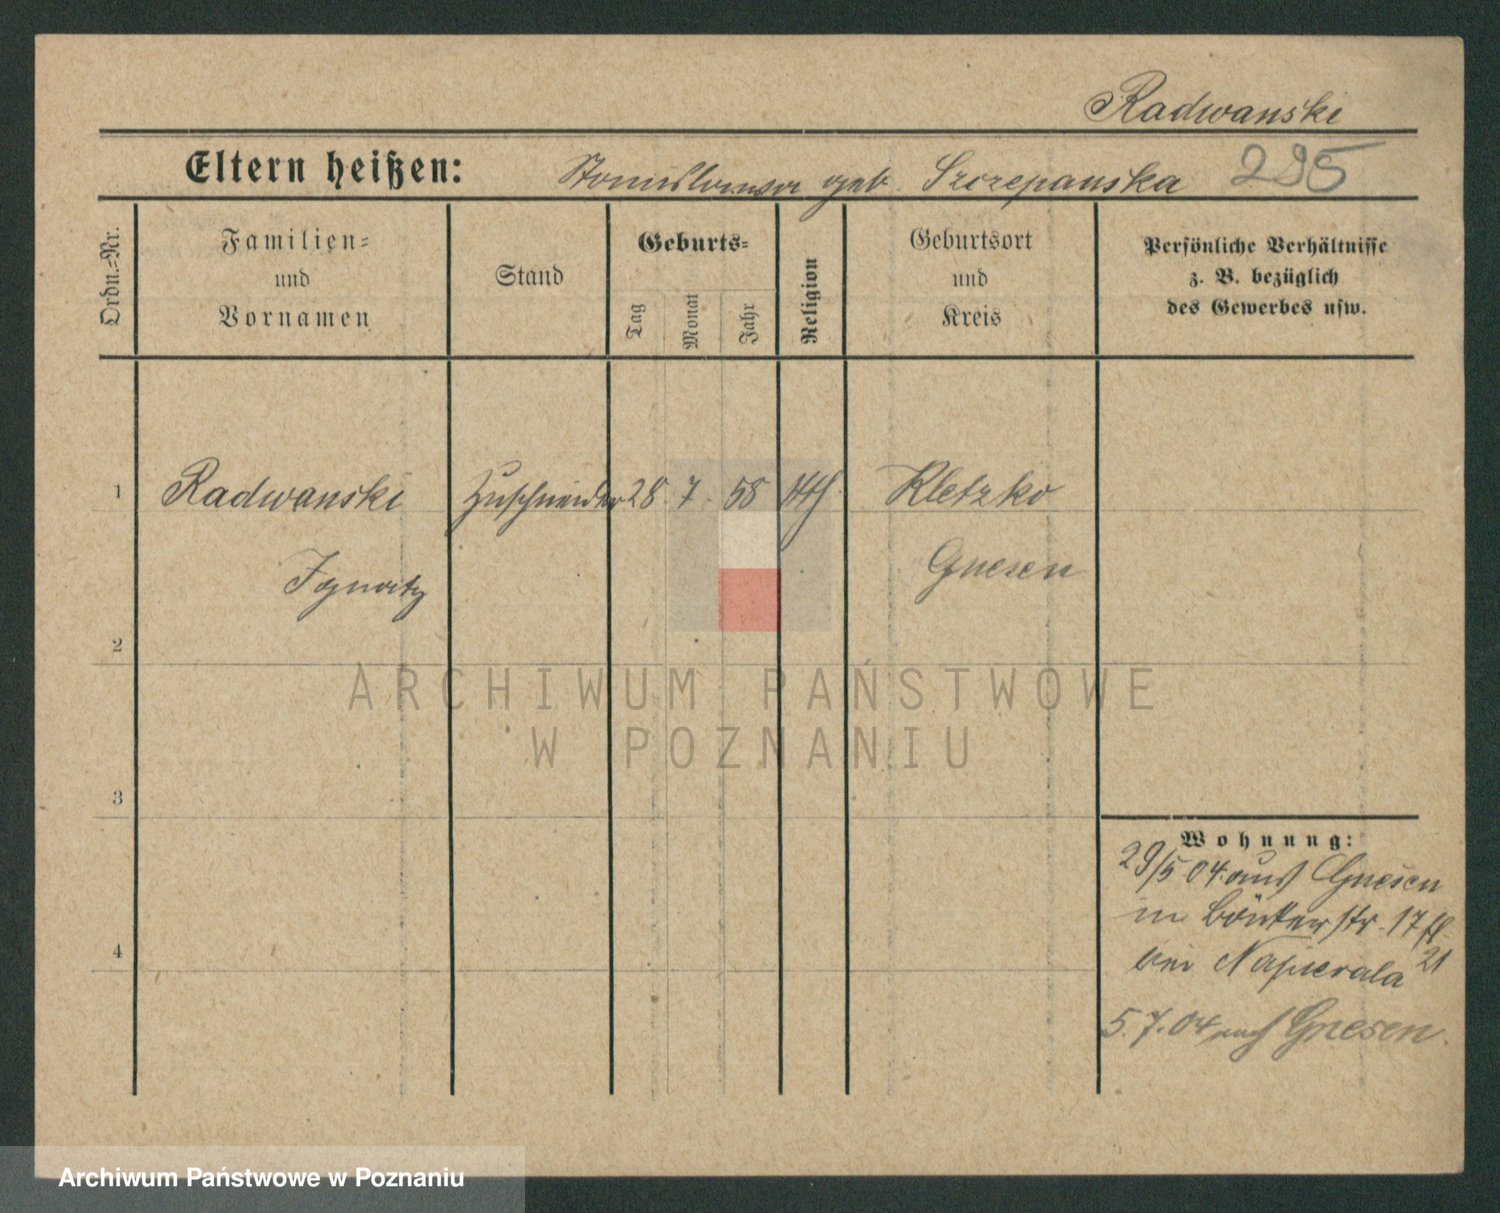 Radwanski
Eltern heißen:
Stanislawa geb. Szczepanska 295
Ordn.=Nr.
Familien=
und
Vornamen
Stand
Geburts=
Tag
Monat
Jahr
Religion
Geburtsort
und
Kreis
Persönliche Verhältnisse
z. B. bezüglich
des Gewerbes usw.
1
Radwanski
Ignatz
Zuschneider
28. 7. 58
kth
Kletzko
Gnesen
2
3
4
ARCHIWUM PAŃSTWOWE
W POZNANIU
Wohnung:
29/5 04 aus Gnesen
in 17
bei Napierala 21
5.7.04 nach Gnesen.
Archiwum Państwowe w Poznaniu